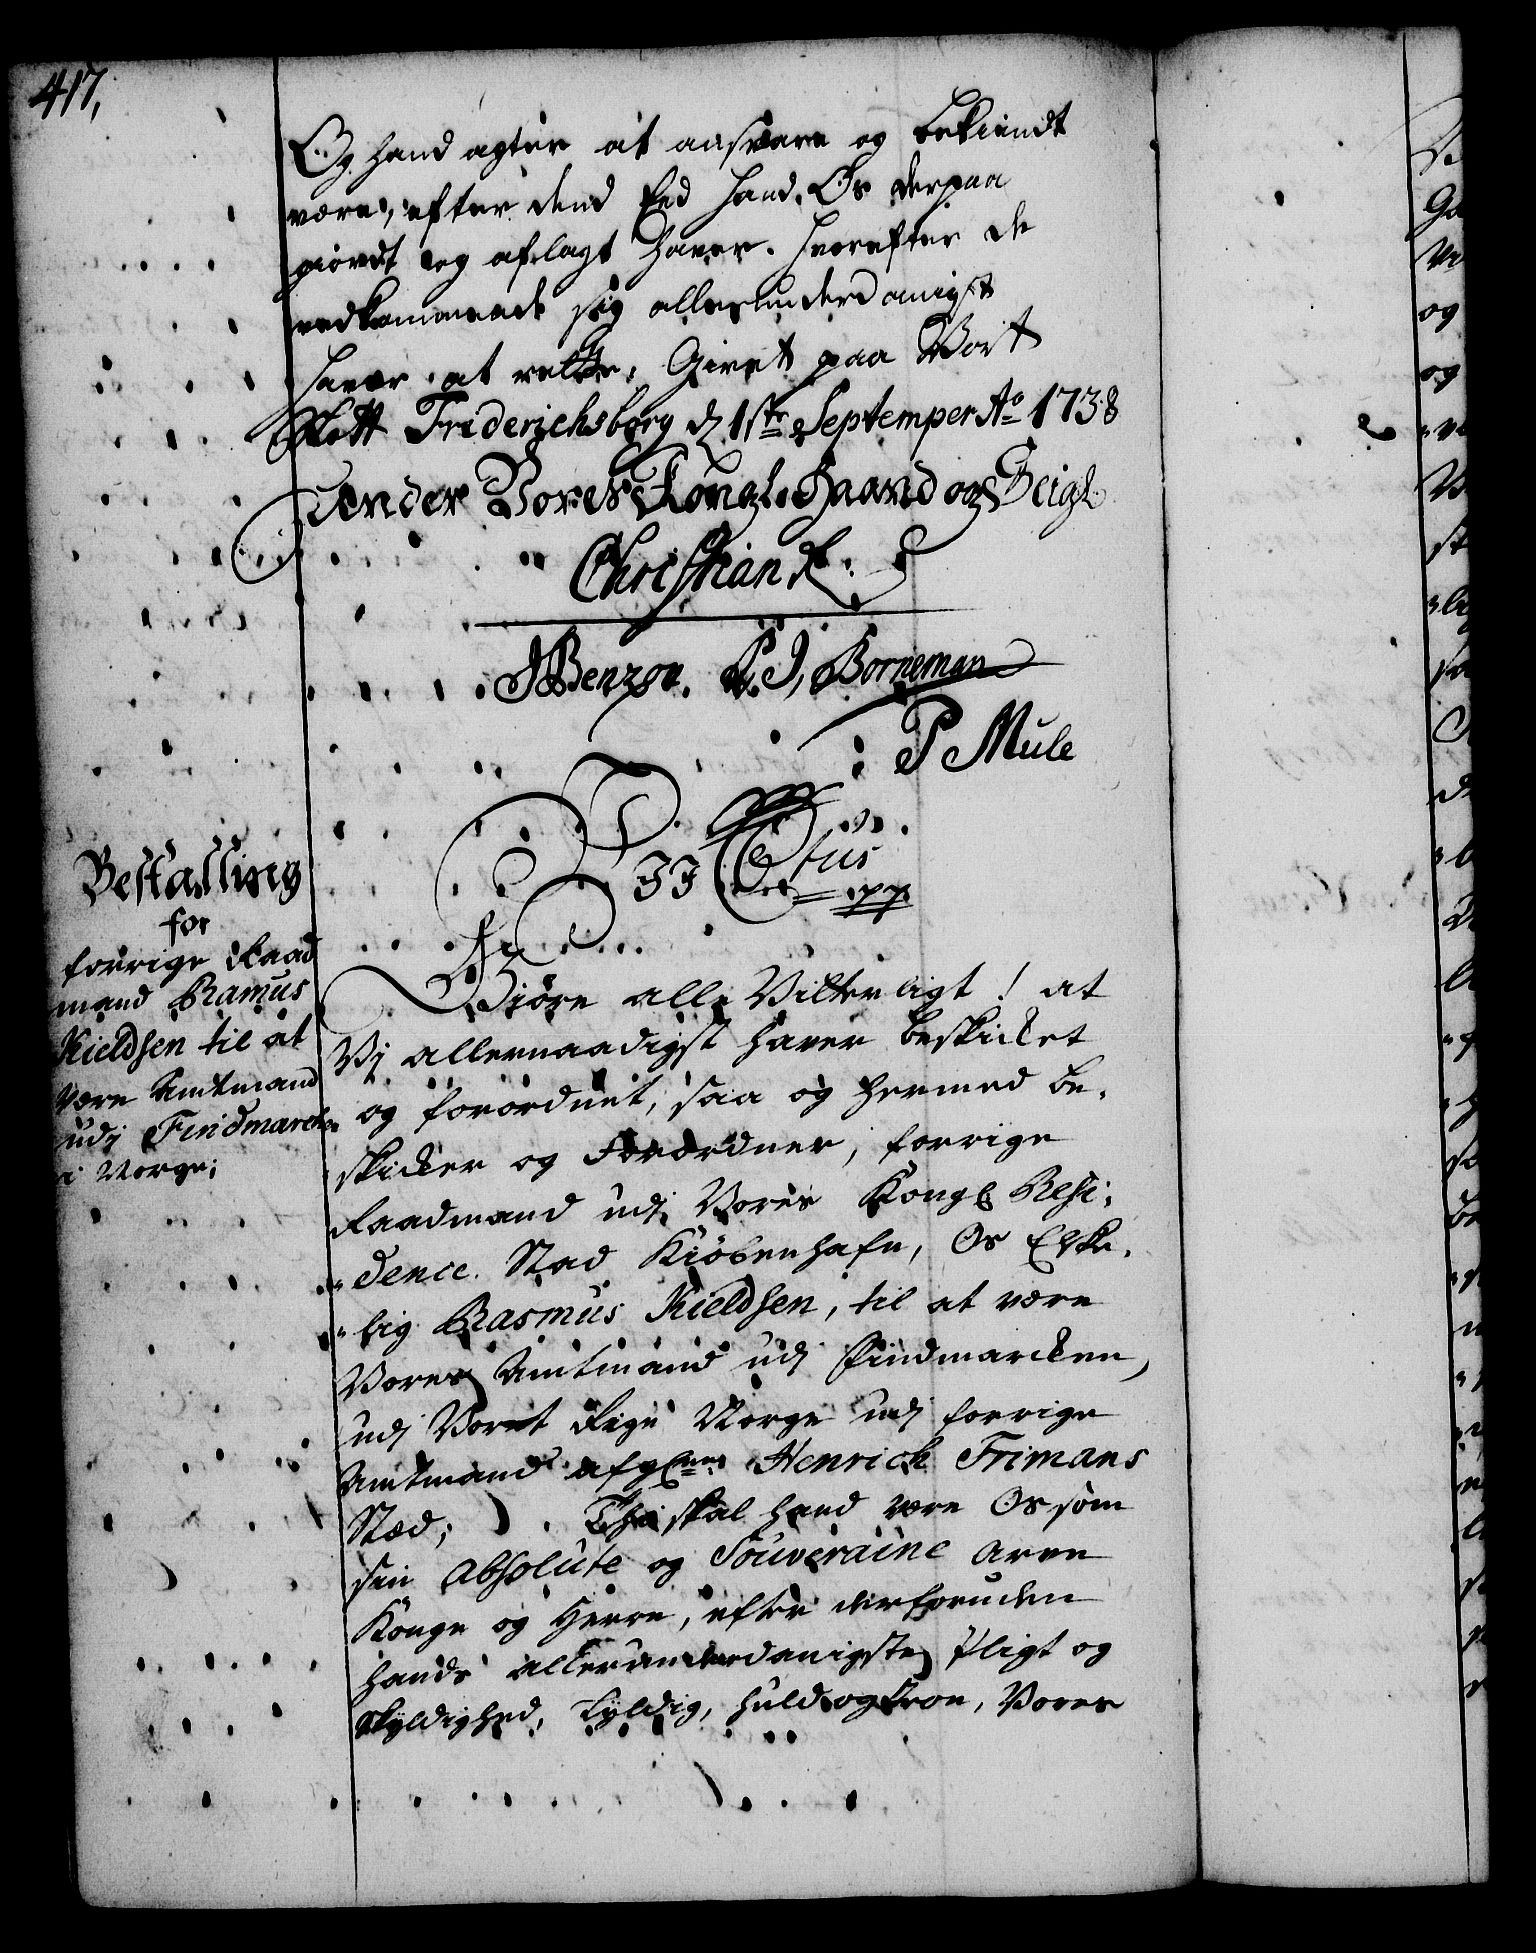 417,
Og hand agter at ansvare og bekiendt
være, efter dend Eed hand Os derpaa
giordt og aflagt haver. Hvorefter de
vedkommende sig allerunderdanigst
haver at rette, Givet paa Vort
Slott Friderichsborg d 1ste Septemper Ao 1738
Under Vores Kongl. Haand og Seigl.
Christian R.
JBenzon. C. J, Borneman
P Mule
Bestalling
for
forrige Raad
mand Ramus
Kieldsen til at
være Amtmand
udj Findmarcken
i Norge;
VI Ctus
pp
Giøre alle Vitterligt! at
Vj allernaadigst haver beskicket
og forordnet, saa og hermed be-
skicker og Forordner, forrige
Raadmand udj Vores Kongl Resi-
dence Stad Kiøbenhafn, Os Elske-
lig Rasmus Kieldsen, til at være
Vores Amtmand udj Findmarcken,
udj Voret Rige Norge udj forrige
Amtmand afgl. Henrick Frimans
Stæd; Thi skal hand være Os som
sin absolute og Souveraine Arve
Konge og Herre, efter derforuden
hands allerunderdanigste Pligt og
Skyldighed, Lydig, huld og troe, Vores